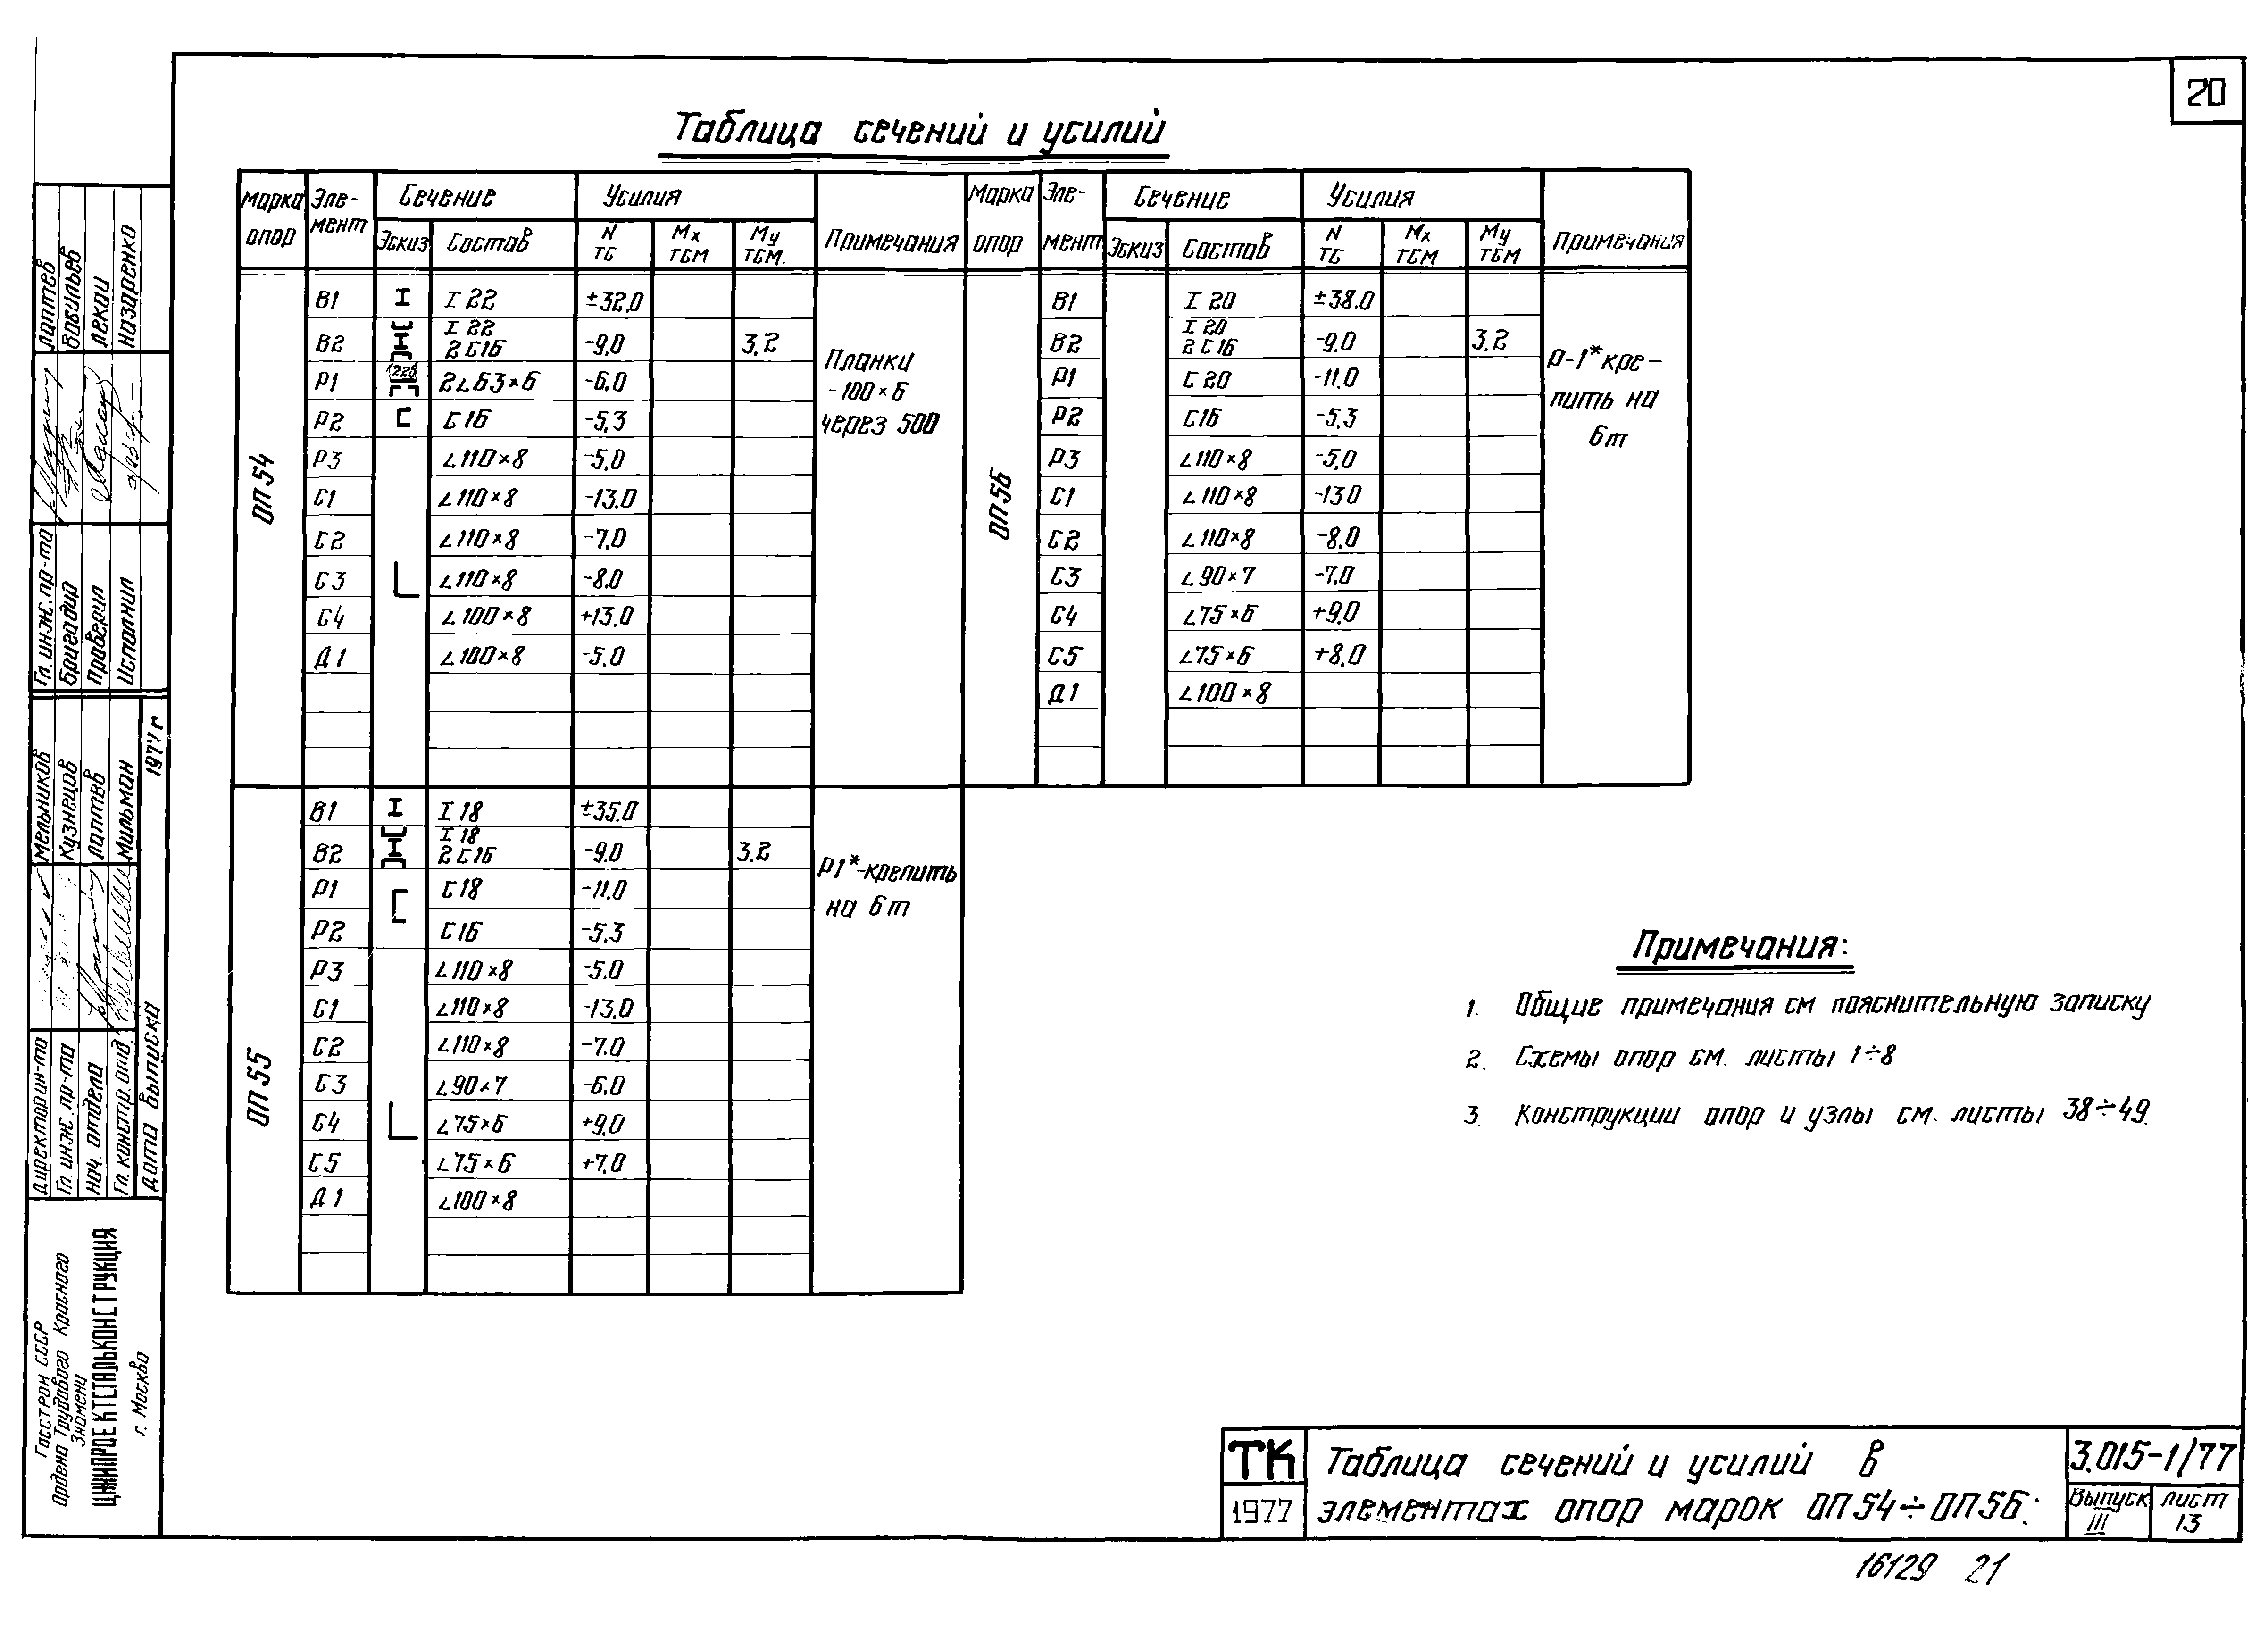 20
Таблица сечений и усилий
Марка опор | Эле-мент | Сечение | Усилия | Примечания | Марка опор | Эле-мент | Сечение | Усилия | Примечания
Эскиз | Состав | N тс | Mx тсм | My тсм. | Эскиз | Состав | N тс | Mx тсм | My тсм
ОП 54
В1 | I 22 | ±32.0
В2 | I 22 2 С16 | -9,0 | 3.2
Р1 | 220 | 2∟63×6 | -6,0
Р2 | С16 | -5,3
Р3 | ∟110×8 | -5,0
С1 | ∟110×8 | -13.0
С2 | ∟110×8 | -7,0
С3 | ∟110×8 | -8.0
С4 | ∟100×8 | +13.0
Д1 | ∟100×8 | -5.0
Планки
-100×6
через 500
ОП 56
В1 | I 20 | ±38.0
В2 | I 20 2 С16 | -9,0 | 3.2
Р1 | С 20 | -11.0
Р2 | С16 | -5,3
Р3 | ∟110×8 | -5,0
С1 | ∟110×8 | -13 0
С2 | ∟110×8 | -8,0
С3 | ∟90×7 | -7,0
С4 | ∟75×6 | +9,0
С5 | ∟75×6 | +8,0
Д1 | ∟100×8
Р-1* кре-
пить на
6т
ОП 55
В1 | I 18 | ±35.0
В2 | I 18 2 С16 | -9,0 | 3.2
Р1 | С18 | -11.0
Р2 | С16 | -5,3
Р3 | ∟110×8 | -5.0
С1 | ∟110×8 | -13.0
С2 | ∟110×8 | -7.0
С3 | ∟90×7 | -6,0
С4 | ∟75×6 | +9,0
С5 | ∟75×6 | +7,0
Д1 | ∟100×8
Р1*-крепить
на 6т
Примечания:
1. Общие примечания см пояснительную записку
2. Схемы опор см. листы 1÷8
3. Конструкции опор и узлы см. листы 38÷49.
ТК
1977
Таблица сечений и усилий в
элементах опор марок ОП54÷ОП56.
3.015-1/77
Выпуск III
лист 13
16129 21
Гл. инж. пр-та Лаптев
Бригадир Васильев
Проверил Лекаи
Исполнил Назаренко
Директор ин-та Мельников
Гл. инж. пр-та Кузнецов
Нач. отдела Лаптев
Гл. констр. отд. Мильман
Дата выписка 1977 г
Госстрой СССР
Ордена Трудового Красного
Знамени
ЦНИИПРОЕКТСТАЛЬКОНСТРУКЦИЯ
г. Москва